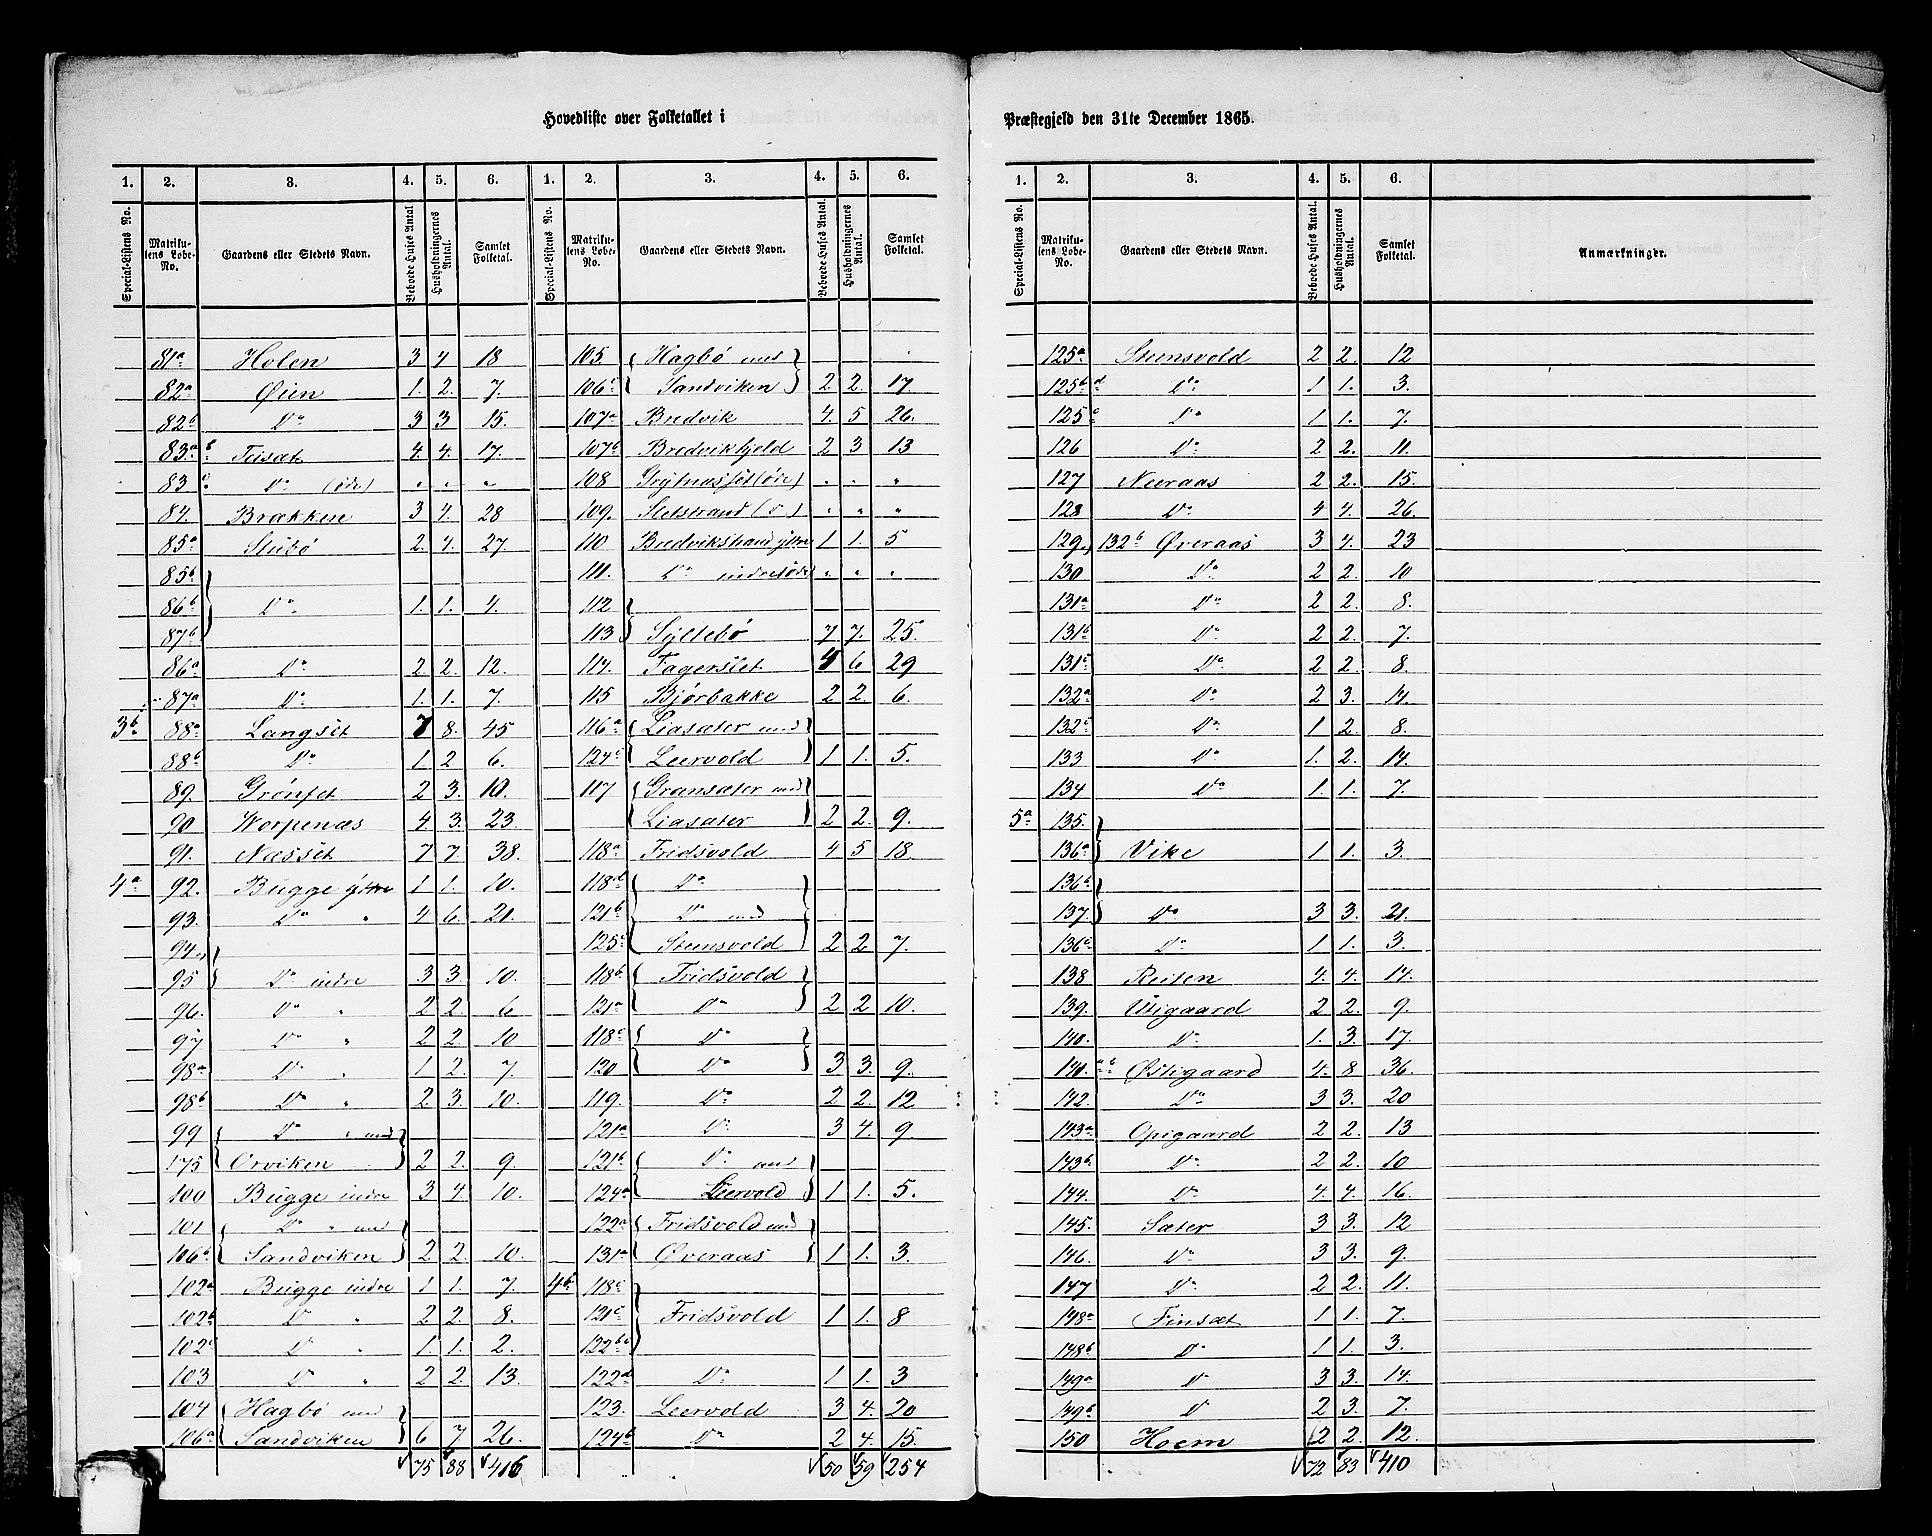 Hovedliste over Folketallet i
Præstegjeld den 31te December 1865.
1. 2. 3. 4. 5. 6. 1. 2. 3. 4. 5. 6.
Special-Listens No. Matrikulens Løbe-No. Gaardens eller Stedets Navn. Beboede Huses Antal Husholdningernes Antal. Samlet Folketal. Special-Listens No. Matrikulens Løbe-No. Gaardens eller Stedets Navn. Beboede Huses Antal. Husholdningernes Antal. Samlet Folketal.
81a Holen 3 4 18
82a Øien 1. 2. 7.
82b Do 3 3 15.
83a b Teisæt 4. 4. 17.
83 c Do (øde) " " "
84. Brækken 3 4. 28
85a Stubø 2. 4. 27.
85b
86b Do 1. 1. 4.
87b
86a Do 2 2. 12.
87a Do 1. 1. 7.
3b 88a Langset 7 8. 45
88b Do 1. 2 6.
89. Grønset 2 3. 10.
90 Worpenæs 4. 3. 23.
91. Næsset 7 7. 38.
4a 92. Bugge ÿttre 1 1. 10.
93. Do " 4 6. 21.
94
95 Do indre 3 3. 10.
96. Do " 2 2. 6
97 Do " 2 2 10
98a Do " 1 2. 7.
98b Do " 2. 3. 10.
99 Do " med
175 Orviken 2 2. 9.
100 Bugge indre 3 4. 10.
101 Do " med
106b Sandviken 2 2. 10.
102a Bugge indre 1 1. 7.
102b D " 2 2. 8.
102c D " 1 1. 2.
103 D " 2 2. 13.
104 Hagbø med
106a Sandviken 6 7. 26.
75 88 416
105 Hagbø med
106c Sandviken 2 2. 17
107a Bredvik 4. 5 26.
107b Bredvikhjeld 2 3 13
108 Grÿtnæsset (øde) " " "
109. Sletstrand (Do) " " "
110 Bredvikstrand ÿttre 1 1. 5
111. Do indre (øde) " " "
112
113 Sÿltebø 7 7. 25.
114. Fagerslet 4 6. 29
115 Bjørbakke 2 2. 6.
116a Liasæter med
124c Leervold 1 1. 5.
107 Gransæter med
Liasæter 2 2. 9.
118a Fridsvold 4 5 18
118d Do
121b Do med
125c Stensvold 2 2 7.
118b Fridsvold
121a Do 2 2 10.
118c Do
120 Do 3 3. 9.
119. Do 2 2. 12
121a Do 3 4. 9
121b Do med
124a Leervold 1 1. 5.
122a Fridsvold med
131a Øveraas 1 1. 3.
4b 118c
121c Fridsvold 1 1. 8
122b
122d Do 1 1. 3
123. Leervold 3 4. 20
124b Do 2 4. 15.
50 59 254
1. 2. 3. 4. 5. 6.
Special-Listens No. Matrikulens Løbe-No. Gaardens eller Stedets Navn. Beboede Huses Antal. Husholdningernes Antal. Samlet Folketal. Anmærkninger.
125a Stensvold 2 2. 12
125b d Do 1 1. 3.
125c Do 1 1. 7.
126 Do 2 2. 11.
127 Nieraas 2 2. 15.
128 Do 4 4. 26.
129, 132b Øveraas 3 4. 23
130 Do 2 2. 10
131a Do 2 2. 8.
131b Do 2 2. 7.
131c Do 2 2. 8.
132a Do 2 3. 14.
132c Do 1 2. 8.
133 Do 1. 2. 14.
134 Do 1 1. 7.
5a 135.
136a Vike 1 1. 3.
136b
137. Do 3 3. 21.
136c Do 1 1. 3.
138 Reiten 4. 4. 14.
139. Utigaard 2 2. 9.
140. Do 1. 3. 17.
141. a b Østigaard 4. 8 36.
142. Do 3 3. 20
143a Opigaard 2 2. 13
143b Do 2 2. 10
144. Do 4. 4. 16.
145. Sæter 3 3. 12
146. Do 3 3. 9.
147 Do 2 2. 11.
148a Finsæt 1 1. 7.
148b Do 1 1. 3.
149a D 3 3. 14.
149b D 2 3. 7.
150 Hoem 2 2. 12.
72 83 410